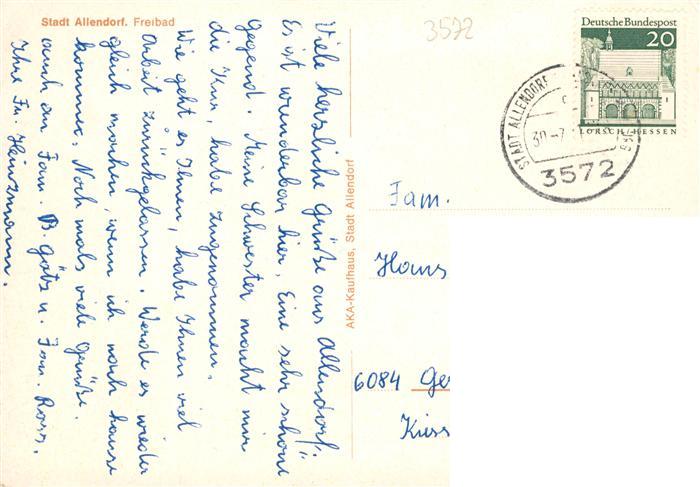 Stadt Allendorf. Freibad
3572
Deutsche Bundespost
20
LORSCH/HESSEN
STADT ALLENDORF
30.-7.
3572
Viele herzliche Grüße aus Allendorf.
Es ist wunderbar hier, Eine sehr schöne
Gegend. Meine Schwester macht mir
die Kur, habe zugenommen.
Wie geht es Ihnen, habe Ihnen viel
Arbeit zurückgelassen. Werde es wieder
gleich machen, wenn ich nach hause
komme. Noch mals viele Grüße.
auch an Fam. B. Götz u. Fam. Ross.
Ihre Fr. Heinzmann.
AKA-Kaufhaus, Stadt Allendorf
Fam.
Hans
6084 Ger
Kiess